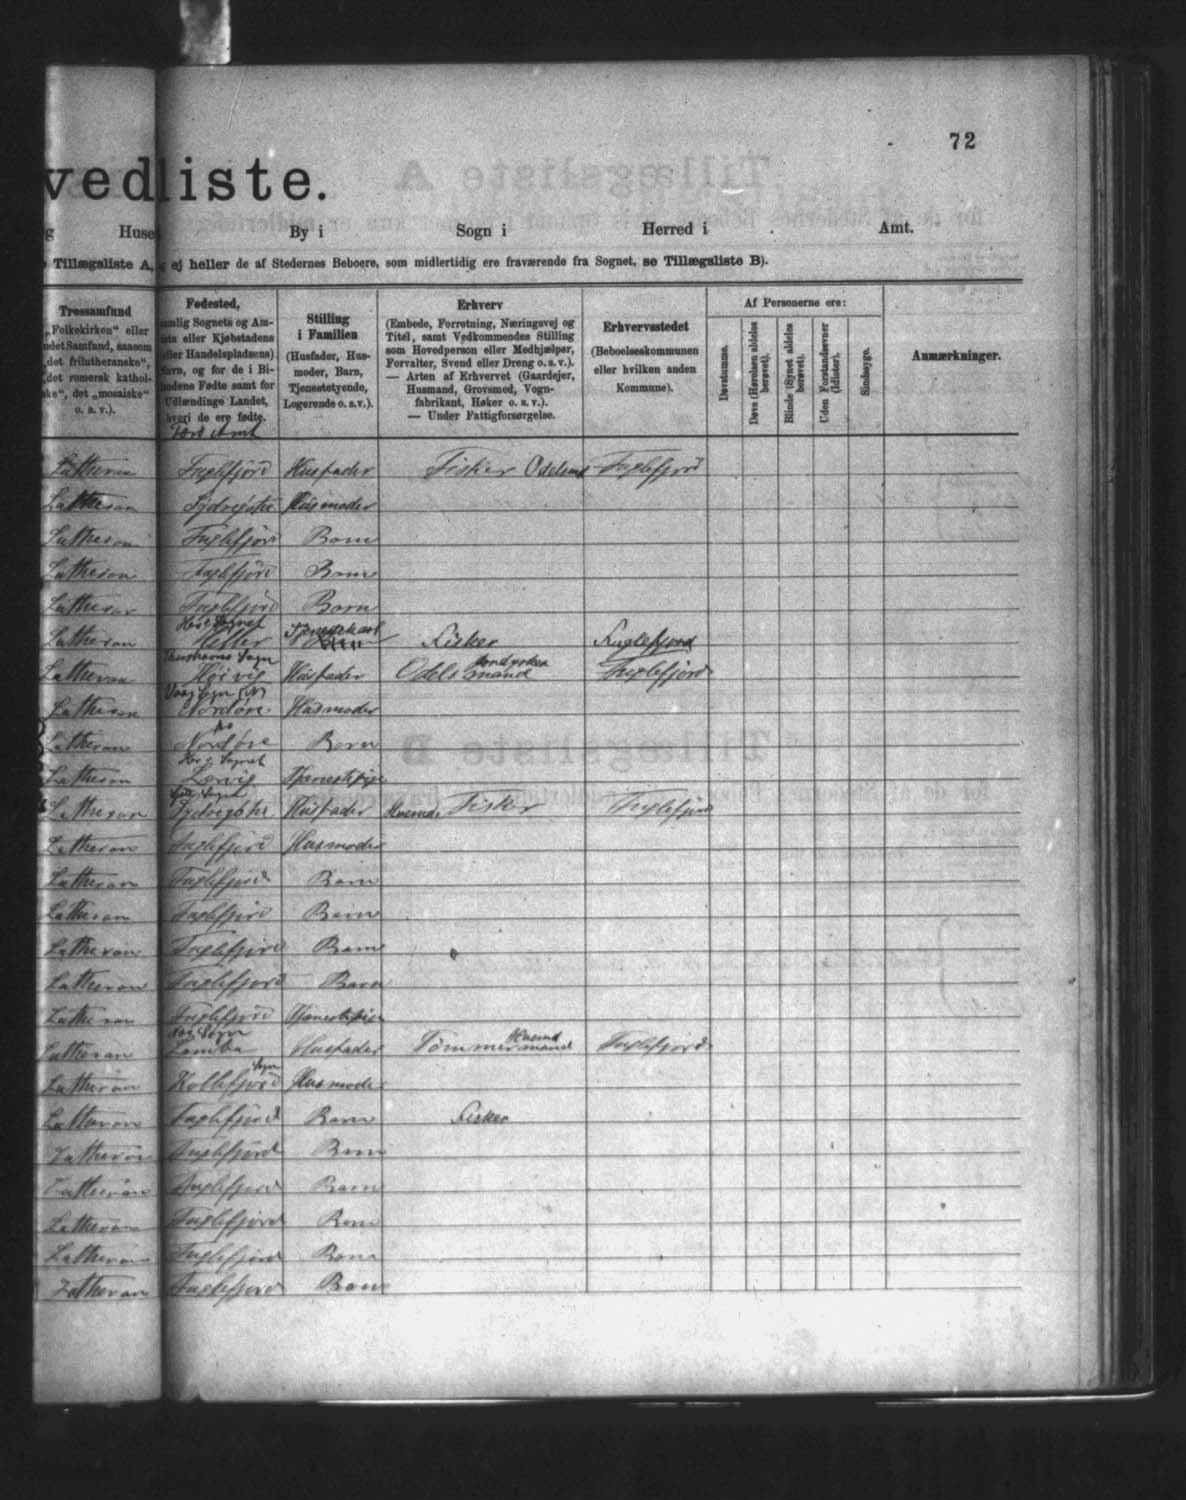 72
vedliste.
g Huse By i Sogn i Herred i Amt.
Tillægsliste A, g ej heller de af Stedernes Beboere, som midlertidig ere fraværende fra Sognet, se Tillægsliste B).
Trossamfund
„Folkekirken" eller
ndet Samfund, saasom
„det frilutheranske",
„det romersk kathol-
ske", det „mosaiske"
o. s. v.).
Fødested,
nemlig Sognets og Am-
ets eller Kjøbstadens
eller Handelspladsens)
Navn, og for de i Bi-
landene Fødte samt for
Udlændinge Landet,
hvori de ere fødte.
Stilling
i Familien
(Husfader, Hus-
moder, Barn,
Tjenestetyende,
Logerende o. s. v.).
Erhverv
(Embede, Forretning, Næringsvej og
Titel, samt Vedkommendes Stilling
som Hovedperson eller Medhjælper,
Forvalter, Svend eller Dreng o. s. v.).
— Arten af Erhvervet (Gaardejer,
Husmand, Grovsmed, Vogn-
fabrikant, Høker o. s. v.).
— Under Fattigforsørgelse.
Erhvervsstedet
(Beboelseskommunen
eller hvilken anden
Kommune).
Af Personerne ere:
Døvstumme.
Døve (Hørelsen aldeles
berøvet).
Blinde (Synet aldeles
berøvet).
Uden Forstandsevner
(Idioter).
Sindssyge.
Anmærkninger.
Lutheran Fuglefjord Husfader Fisker Fuglefjord
Lutheran Sydregøte Husmoder
Lutheran Fuglefjord Barn
Lutheran Fuglefjord Barn
Lutheran Fuglefjord Barn
Lutheran Fisker Fuglefjord
Thorshavns Sogn
Lutheran Høivig Husfader Odelsmand Fuglefjord
Lutheran Nordøre Husmoder
Lutheran Nordøre Barn
Lutheran Lervig Tjenestepige
Lutheran Sydregøte Husfader Fisker Fuglefjord
Lutheran Fuglefjord Husmoder
Lutheran Fuglefjord Barn
Lutheran Fuglefjord Barn
Lutheran Fuglefjord Barn
Lutheran Fuglefjord Barn
Lutheran Fuglefjord Tjenestepige
Lutheran Lamba Husfader Tømmermand Fuglefjord
Lutheran Kollefjord Husmoder
Lutheran Fuglefjord Barn Fisker
Lutheran Fuglefjord Barn
Lutheran Fuglefjord Barn
Lutheran Fuglefjord Barn
Lutheran Fuglefjord Barn
Lutheran Fuglefjord Barn